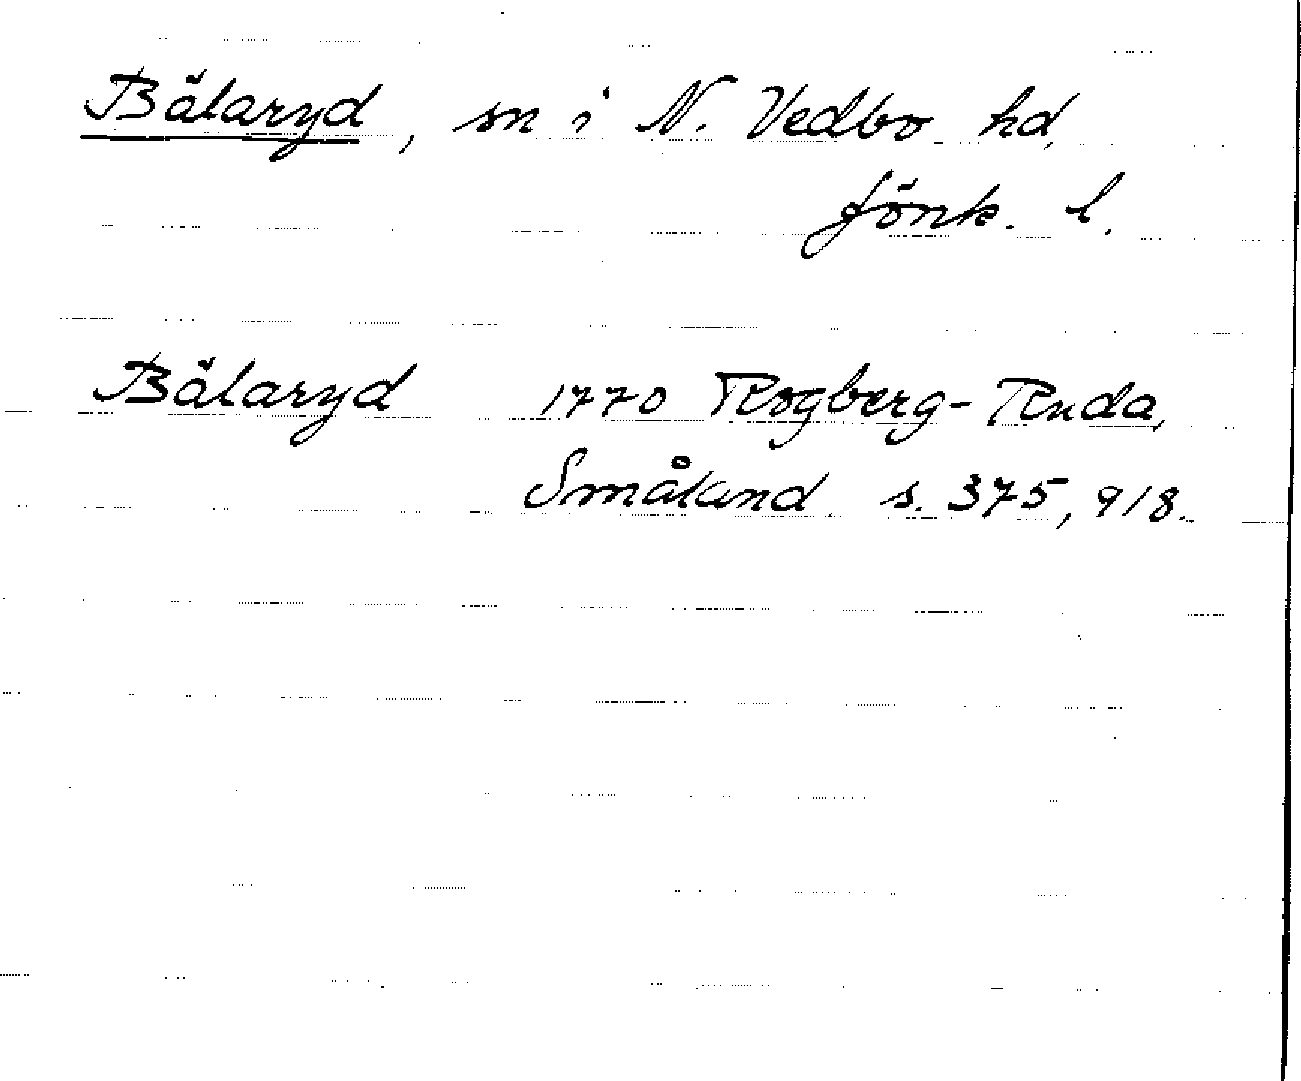 Bälaryd, sn i N. Vedbo hd,
Jönk. l.
Bälaryd 1770 Rogberg-Ruda,
Småland s. 375, 918.